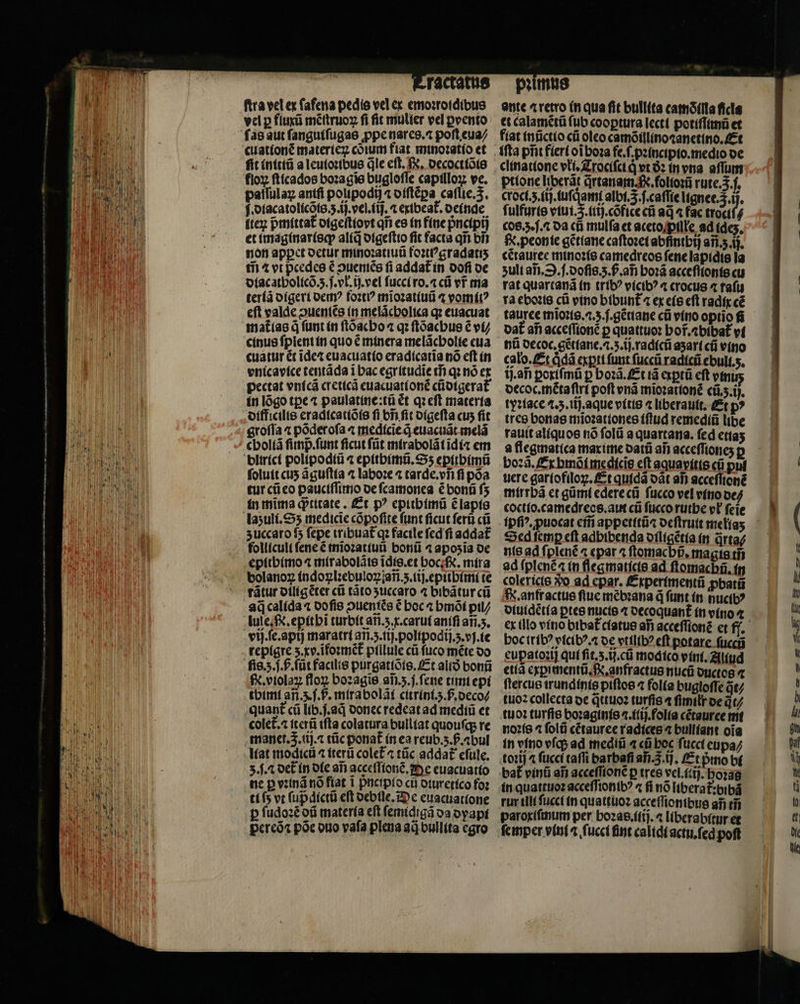 Tractatus
ſtra vel ex ſafena pedis vel ex emoꝛroidibus
vel ꝑ fluxū mēſtruoꝝ ſi ſit mulier vel ꝓvento
ſas aut ſanguiſugas ꝓpe nares.⁊ poſt eua/
cuationē materieꝝ cōium fiat minoꝛatio et
ſit initiū a leuioꝛibus q̄le eſt. ℞. decoctiōis
floꝝ ſticados boꝛagis bugloſſe capilloꝝ ve.
paſſulaꝝ aniſi polipodij ⁊ diſtēpa caſſie.ʒ̄.
ſ.diacatolicōis.ʒ.ij.vel.iij. ⁊ exibeat̄. deinde
iteꝝ p̄mittat̄ digeſtiovt qn̄ es in fine pn̄cipij
et imaginarisqꝫ aliq̄ digeſtio ſit facta qn̄ bn̄
non appꝫet detur minoꝛatiuū foꝛtiꝰgradatiʒ
tn̄ ⁊ vt p̄cedes ē ꝯueniēs ſi addat̄ in doſi de
diacatholicō.ʒ.ſ.vl̄.ij.vel ſucci ro.⁊ cū vr̄ ma
teriā digeri demꝰ foꝛtiꝰ mīoꝛatiuū ⁊ vomitꝰ
eſt valde ꝯueniēs in melācholica qꝛ euacuat
mat̄ias q̄ ſunt in ſtōacho ⁊ qꝛ ſtōachus ē vi/
cinus ſpleni in quo ē minera melācholie cua
cuatur ēt ideʒ euacuatio eradicatia nō eſt in
vnicavice tentāda i hac egritudīe tn̄ qꝛ nō ex
pectat vnicā creticā euacuationē cūdigerat̄
in lōgo tꝑe ⁊ paulatine:tū ēt qꝛ eſt materia
difficilis eradicatiōis ſi bn̄ ſit digeſta cuʒ ſit
groſſa ⁊ pōderoſa ⁊ medicīe q̄ euacuāt melā
choliā ſimp̄.ſunt ſicut ſūt mirabolāi īdi⁊ em
blirici polipodiū ⁊ epithimū.Sʒ epithimū
ſoluit cuʒ āguſtia ⁊ laboꝛe ⁊ tarde.vn̄ ſi pōa
tur cū eo pauciſſimo de ſcamonea ē bonū ſʒ
in mīma qͣ̄titate . Et pꝰ epithimū ē lapis
laʒuli.Sʒ medicīe cōpoſite ſunt ſicut ſerū cū
ʒuccaro ſʒ ſepe tribuat̄ qꝛ facile ſed ſi addat̄
folliculi ſene ē mīoꝛatiuū bonū ⁊ apoꝛia de
epithimo ⁊ mirabolāis īdis.et hoc.℞. mira
bolanoꝝ indoꝝ⁊ebuloꝝ|an̄.ʒ.iij.epithimi te
rātur diligēter cū tāto ʒuccaro ⁊ bibātur cū
aq̄ calida ⁊ doſis ꝯueniēs ē hoc ⁊ hmōi pil/
lule.℞.epithi turbit an̄.ʒ.x.carui aniſi an̄.ʒ.
vij.ſe.apij maratri an̄.ʒ.iij.polipodij.ʒ.vj.ie
repigre ʒ.xv.īfoꝛmēt̄ pillule cū ſuco mēte do
ſis.ʒ.ſ.β.ſūt facilis purgatiōis.Et aliḋ bonū
℞.violaꝝ floꝝ boꝛagis an̄.ʒ.ſ.ſene timi epi
thimi an̄.ʒ.ſ.β. mirabolāi citrini.ʒ.β.deco/
quant̄ cū lib.ſ.aq̄ donec redeat ad mediū et
colet̄.⁊ iterū iſta colatura bulliat quouſqꝫ re
manet.ʒ̄.iij.⁊ tūc ponat̄ in ea reub.ʒ.β.⁊bul
liat modicū ⁊ iterū colet̄ ⁊ tūc addat̄ eſule.
ʒ.ſ.⁊ det̄ in die an̄ acceſſionē.De euacuatio
ne ꝑ vꝛinā nō fiat i pn̄cipio cū diuretico foꝛ
ti ſʒ vt ſup̄dictū eſt debile.De euacuatione
ꝑ ſudoꝛē dū materia eſt ſemidigā da dyapi
pereō⁊ pōe duo vaſa plena aq̄ bullita egro
pꝛimus
ante ⁊ retro in qua ſit bullita camōilla ſicla
et calamētū ſub cooptura lecti potiſſimū et
fiat inūctio cū oleo camōillino⁊anetino.Et
iſta pn̄t fieri oi hoꝛa ſe.ſ.pꝛincipio.medio de
clinatione vl̄i.Trociſci q̄ vt dꝛ in vna aſſum
ptione liberāt q̄rtanam.℞.folioꝛū rute.ʒ̄.ſ.
croci.ʒ.iij.iuſq̄ami albi.ʒ̄.ſ.caſſie lignee.ʒ̄.ij.
ſulfuris viui.ʒ̄.iiij.cōfice cū aq̄ ⁊ fac trociſ/
cos.ʒ.ſ.⁊ da cū mulſa et aceto,pille ad ideʒ.
℞.peonie gētiane caſtoꝛei abſinthij an̄.ʒ.ij.
cētauree minoꝛis camedreos ſene lapidis la
ʒuli an̄.Э.ſ.doſis.ʒ.β.an̄ hoꝛā acceſſionis cu
rat quartanā in tribꝰ vicibꝰ ⁊ crocus ⁊ raſu
ra eboꝛis cū vino bibunt̄ ⁊ ex eis eſt radix cē
tauree mīoꝛis.⁊.ʒ.ſ.gētiane cū vino optio ſi
dat̄ an̄ acceſſionē ꝑ quattuoꝛ hoꝛ̄.⁊bibat̄ vi
nū decoc.gētiane.⁊.ʒ.ij.radicū aʒari cū vino
calo.Et q̄dā expti ſunt ſuccū radicū ebuli.ʒ.
ij.an̄ ꝓxīmū ꝑ hoꝛā.Et iā exptū eſt vinuʒ
decoc.mētaſtri poſt vnā mīoꝛationē cū.ʒ.ij.
tyꝛiace ⁊.ʒ.iij.aque vitis ⁊ liberauit. Et pꝰ
tres bonas mīoꝛationes iſtud remediū libe
rauit aliquos nō ſolū a quartana. ſed etiaʒ
a flegmatica maxime datū an̄ acceſſioneʒ ꝑ
hoꝛā.Ex hmōi medicīs eſt aquavitis cū pul
uere gariofiloꝝ.Et quidā dāt an̄ acceſſionē
mirrhā et gūmi edere cū ſucco vel vino de/
coctio.camedreos.aut cū ſucco ruthe vl̄ ſeīe
ipſiꝰ.ꝓuocat em̄ appetitū⁊ deſtruit meliaʒ
Sed ſemꝑ eſt adhibenda diligētia in q̄rta/
nis ad ſplenē ⁊ epar ⁊ ſtomachū. magis tn̄
ad ſplenē ⁊ in flegmaticis ad ſtomachū. in
colericis ꝟo ad epar. Experimentū ꝓbatū
℞.anfractus ſiue mēbꝛana q̄ ſunt in nucibꝰ
diuidētia ꝑtes nucis ⁊ decoquant̄ in vino ⁊
ex illo vino bibat̄ ciatus an̄ acceſſionē et ff̄.
hoc tribꝰ vicibꝰ.⁊ de vtilibꝰ eſt potare ſuccū
eupatoꝛij qui ſit.ʒ.ij.cū modico vini. Aliud
etiā exꝑimentū.℞.anfractus nucū ductos ⁊
ſtercus irundinis piſtos ⁊ folia bugloſſe q̄t/
tuoꝛ collecta de q̄ttuoꝛ turſis ⁊ ſimil̄r de q̄t/
tuoꝛ turſis boꝛaginis ⁊.iiij.folia cētauree mi
noꝛis ⁊ ſolū cētauree radices ⁊ bulliant oīa
in vino vſqꝫ ad mediū ⁊ cū hoc ſucci eupa/
toꝛij ⁊ ſucci taſſi barbaſi an̄.ʒ̄.ij. Et pͥmo bi
bat̄ vinū an̄ acceſſionē ꝑ tres vel.iiij. hoꝛas
in quattuoꝛ acceſſionibꝰ ⁊ ſi nō liberat̄:bibā
rur illi ſucci in quattuoꝛ acceſſionibus an̄ tn̄
paroxiſmum per hoꝛas.iiij.⁊ liberabitur et
ſemper vini ⁊ ſucci ſint calidi actu.ſed poſt